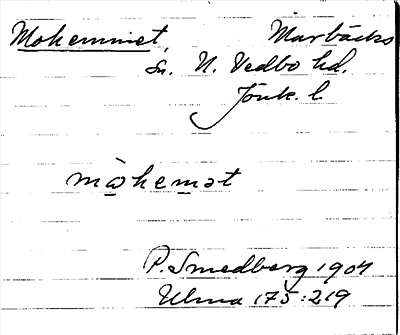 Mohemmet, Marbäcks
sn. N. Vedbo hd.
Jönk. l.
màhemət
P. Smedberg 1904
Ulma 175:219